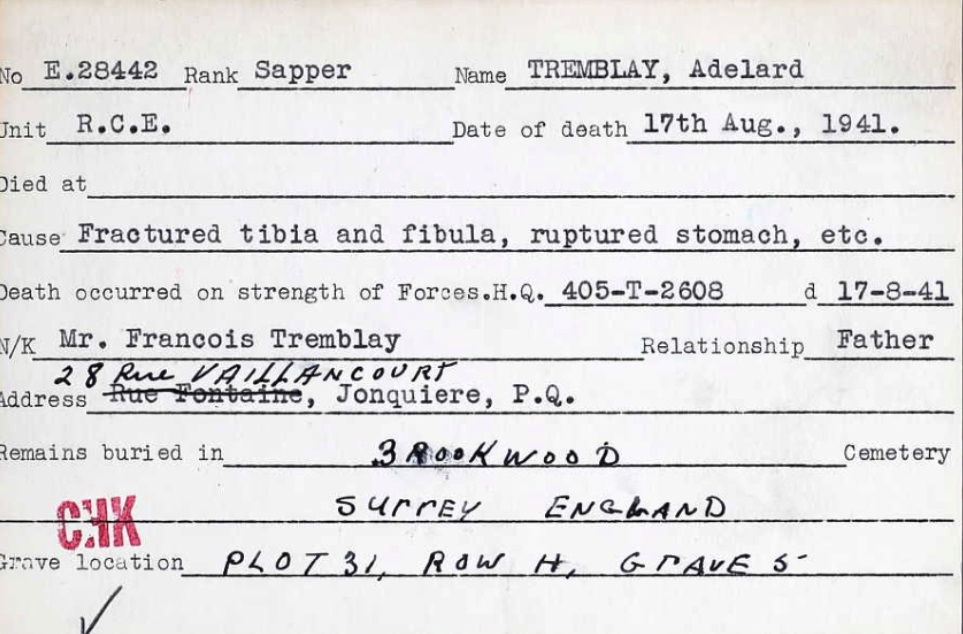 No E.28442 Rank Sapper Name TREMBLAY, Adelard
Unit R.C.E. Date of death 17th Aug., 1941.
Died at
Cause Fractured tibia and fibula, ruptured stomach, etc.
Death occurred on strength of Forces.H.Q. 405-T-2608 d 17-8-41
N/K Mr. Francois Tremblay Relationship Father
28 Rue VAILLANCOURT
Address Rue Fontaine, Jonquiere, P.Q.
Remains buried in BROOKWOOD Cemetery
SURREY ENGLAND
CHK
Grave location PLOT 31, ROW H, GRAVE 5